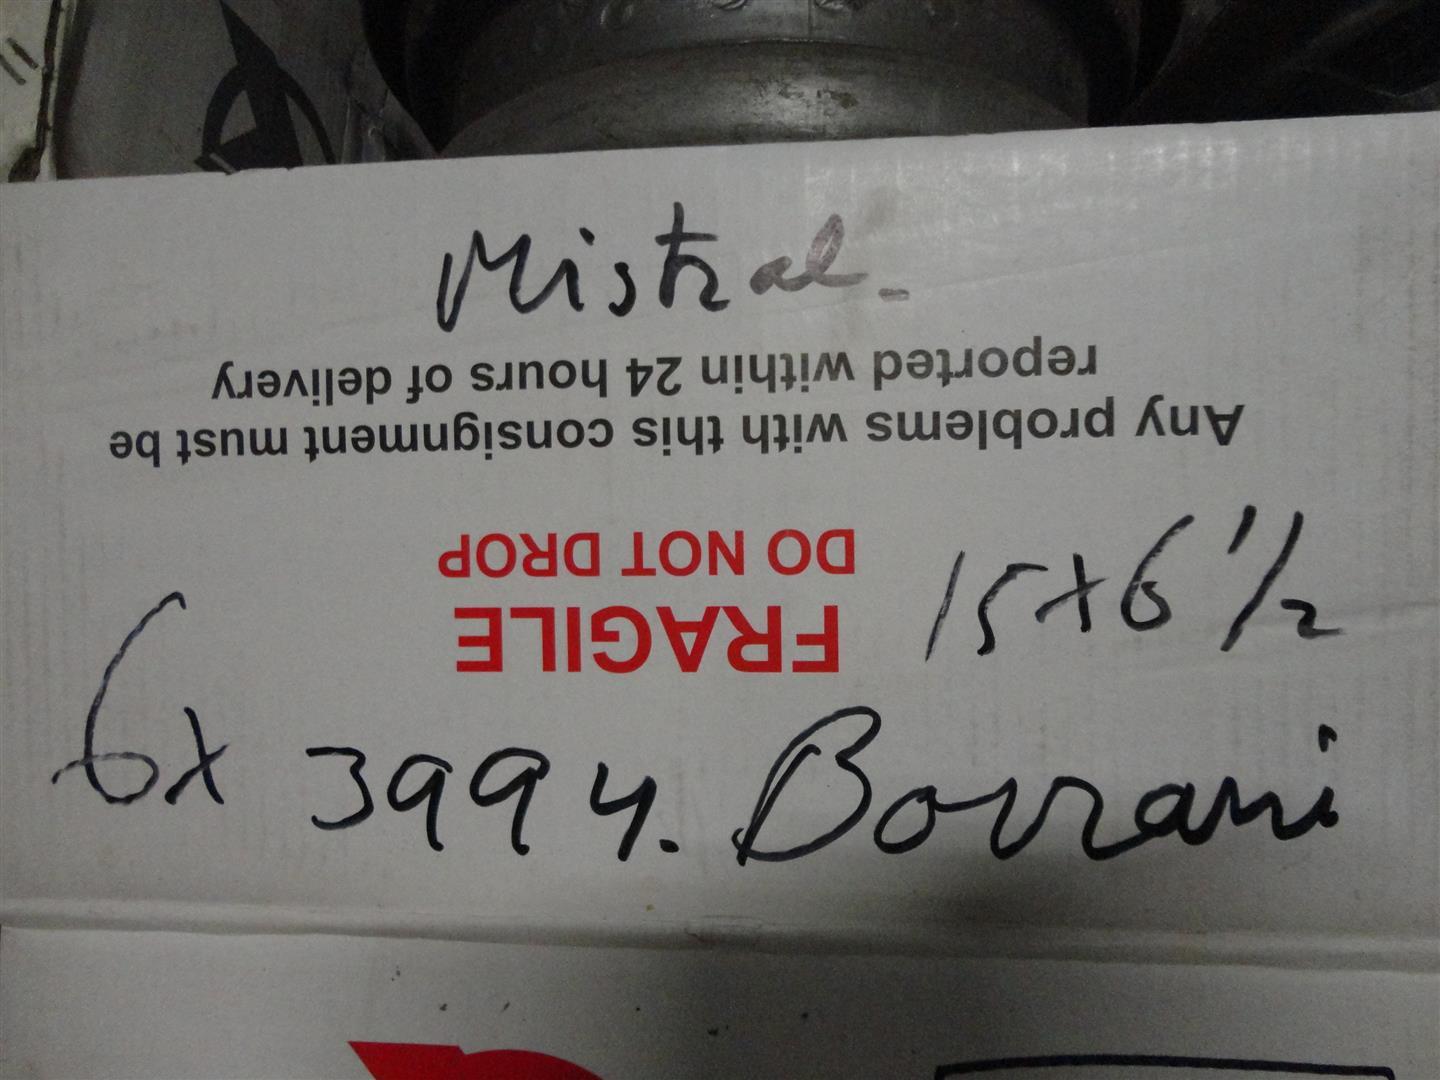 Mistral-
Any problems with this consignment must be
reported within 24 hours of delivery
FRAGILE
DO NOT DROP
15x6 1/2
6x 3994. Borrani